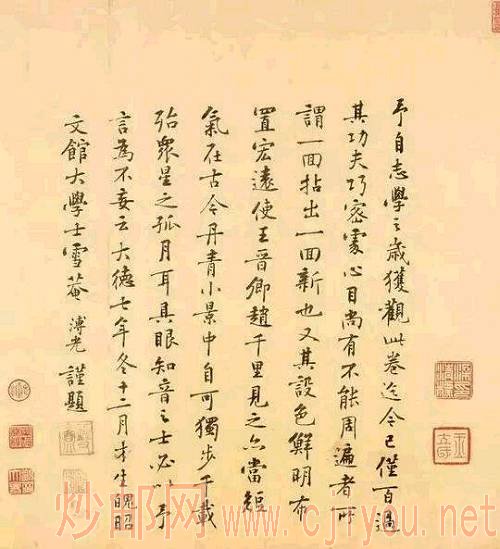 予自志學之歲獲觀此卷迄今已僅百過
其功夫巧密處心目尚有不能周遍者所
謂一面拈出一面新也又其設色鮮明布
置宏遠使王晉卿趙千里見之亦當短
氣在古今丹青小景中自可獨步千載
殆眾星之孤月耳具眼知音之士必以予
言為不妄云大德七年冬十二月才生魄昭
文館大學士雪菴 溥光 謹題
炒邮网 www.cjiyou.net